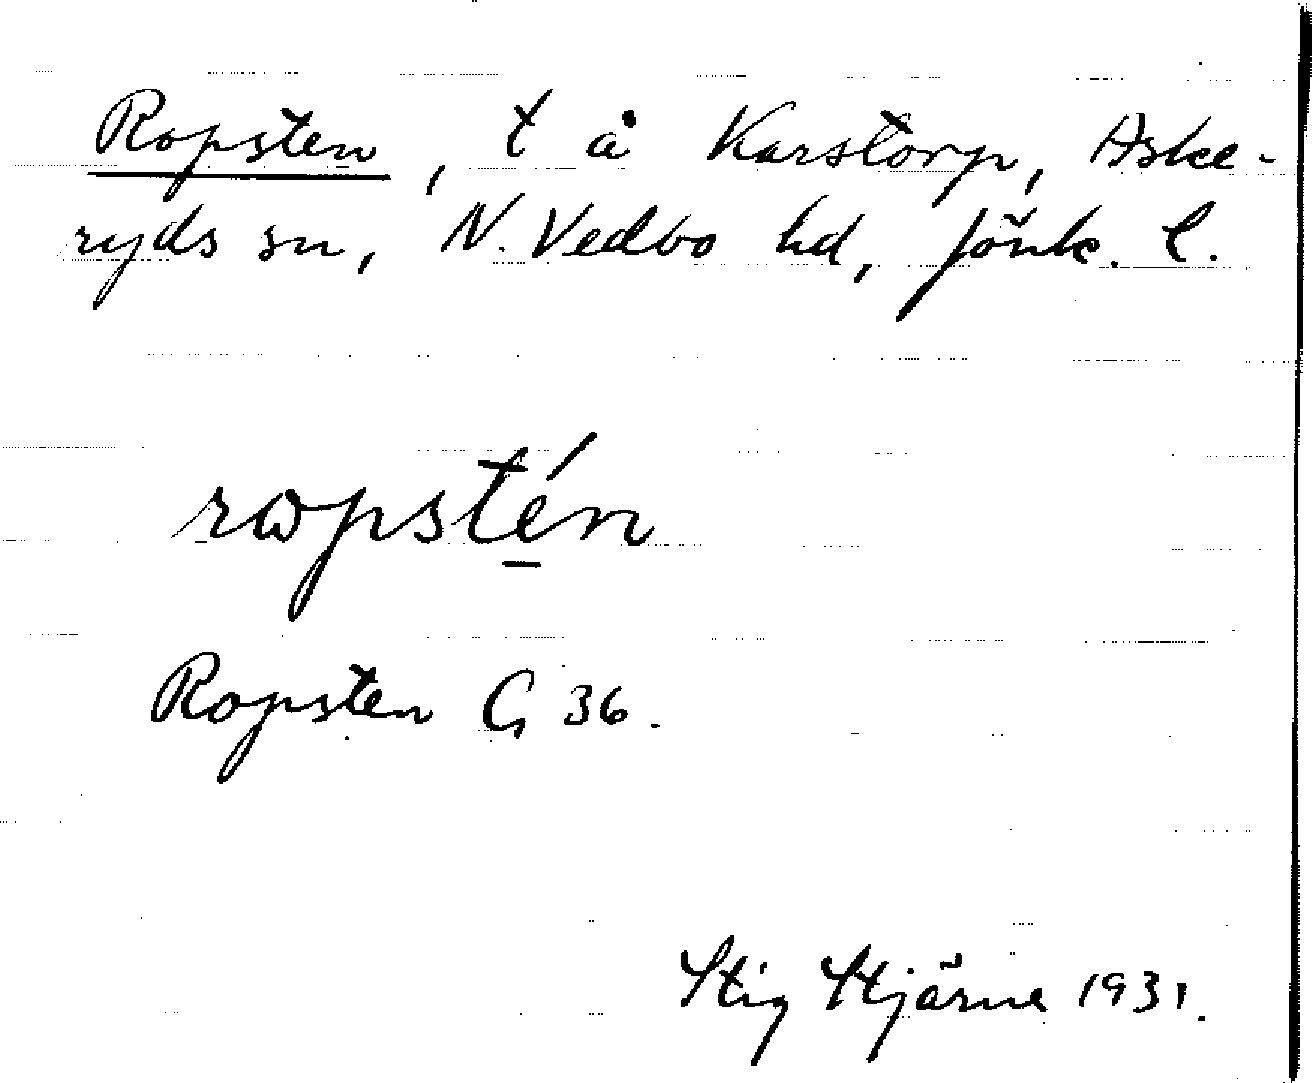 Ropsten, t å Karstorp, Aske-
ryds sn, N. Vedbo hd, Jönk. l.
rωpstén
Ropsten G 36.
Stig Stjärne 1931.